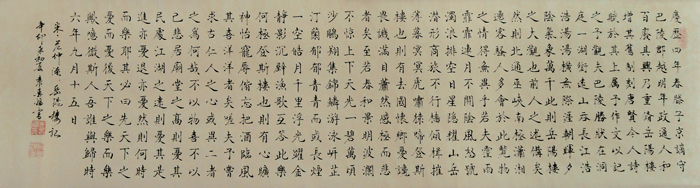 慶曆四年春滕子京謫守
巴陵郡越明年政通人和
百廢具興乃重修岳陽樓
增其舊制刻唐賢今人詩
賦於其上屬予作文以記
之予觀夫巴陵勝狀在洞
庭一湖銜遠山吞長江浩
浩湯湯橫無際涯朝暉夕
陰氣象萬千此則岳陽樓
之大觀也前人之述備矣
然則北通巫峽南極瀟湘
遷客騷人多會於此覽物
之情得無異乎若夫霪雨
霏霏連月不開陰風怒號
濁浪排空日星隱耀山岳
潛形商旅不行檣傾楫摧
薄暮冥冥虎嘯猿啼登斯
樓也則有去國懷鄉憂讒
畏譏滿目蕭然感極而悲
者矣至若春和景明波瀾
不驚上下天光一碧萬頃
沙鷗翔集錦鱗游泳岸芷
汀蘭郁郁青青而或長煙
一空皓月千里浮光躍金
靜影沉璧漁歌互答此樂
何極登斯樓也則有心曠
神怡寵辱偕忘把酒臨風
其喜洋洋者矣嗟夫予嘗
求古仁人之心或異二者
之為何哉不以物喜不以
己悲居廟堂之高則憂其
民處江湖之遠則憂其君是
進亦憂退亦憂然則何時
而樂耶其必曰先天下之
憂而憂後天下之樂而樂
歟噫微斯人吾誰與歸時
六年九月十五日
宋范仲淹岳陽樓記
辛卯